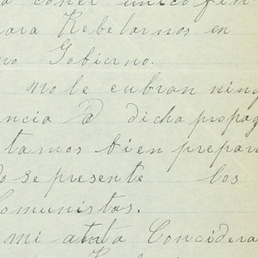 con el unico fin
para Rebelarnos en
no Gobierno.
no le cubran ning
ncia @ dicha propag
tamos bien prepar
do se presente los
Comunistas.
mi atata Concidera